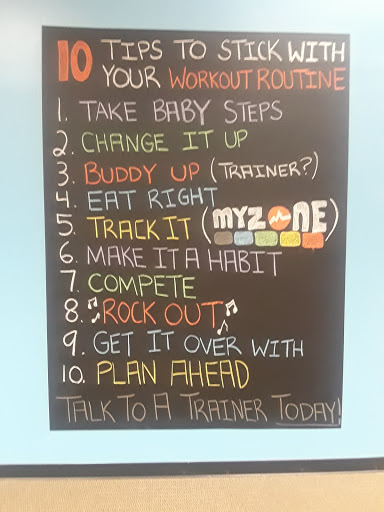 10 TIPS TO STICK WITH
YOUR WORKOUT ROUTINE
1. TAKE BABY STEPS
2. CHANGE IT UP
3. BUDDY UP (TRAINER?)
4. EAT RIGHT
5. TRACK IT (MYZONE)
6. MAKE IT A HABIT
7. COMPETE
8. ROCK OUT
9. GET IT OVER WITH
10. PLAN AHEAD
TALK TO A TRAINER TODAY!